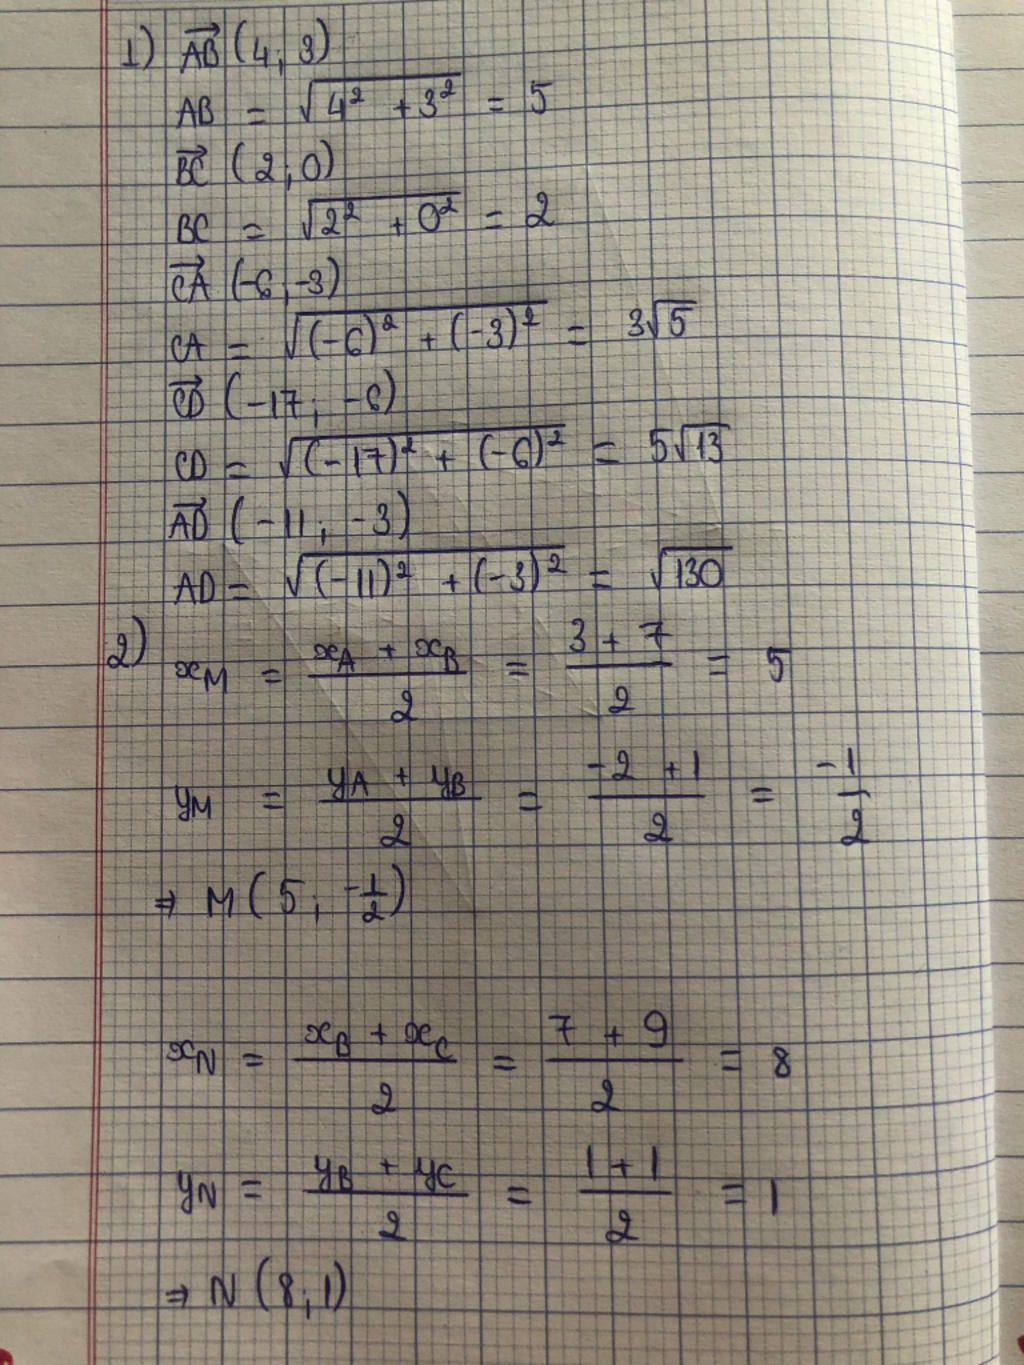 1) \overrightarrow{AB} (4; 3)
AB = √(4² + 3²) = 5
\overrightarrow{BC} (2; 0)
BC = √(2² + 0²) = 2
\overrightarrow{CA} (-6; -3)
CA = √((-6)² + (-3)²) = 3√5
\overrightarrow{CD} (-17; -6)
CD = √((-17)² + (-6)²) = 5√13
\overrightarrow{AD} (-11; -3)
AD = √((-11)² + (-3)²) = √130
2) x_M = (x_A + x_B)/2 = (3 + 7)/2 = 5
y_M = (y_A + y_B)/2 = (-2 + 1)/2 = -1/2
⇒ M (5; -1/2)
x_N = (x_B + x_C)/2 = (7 + 9)/2 = 8
y_N = (y_B + y_C)/2 = (1 + 1)/2 = 1
⇒ N (8; 1)